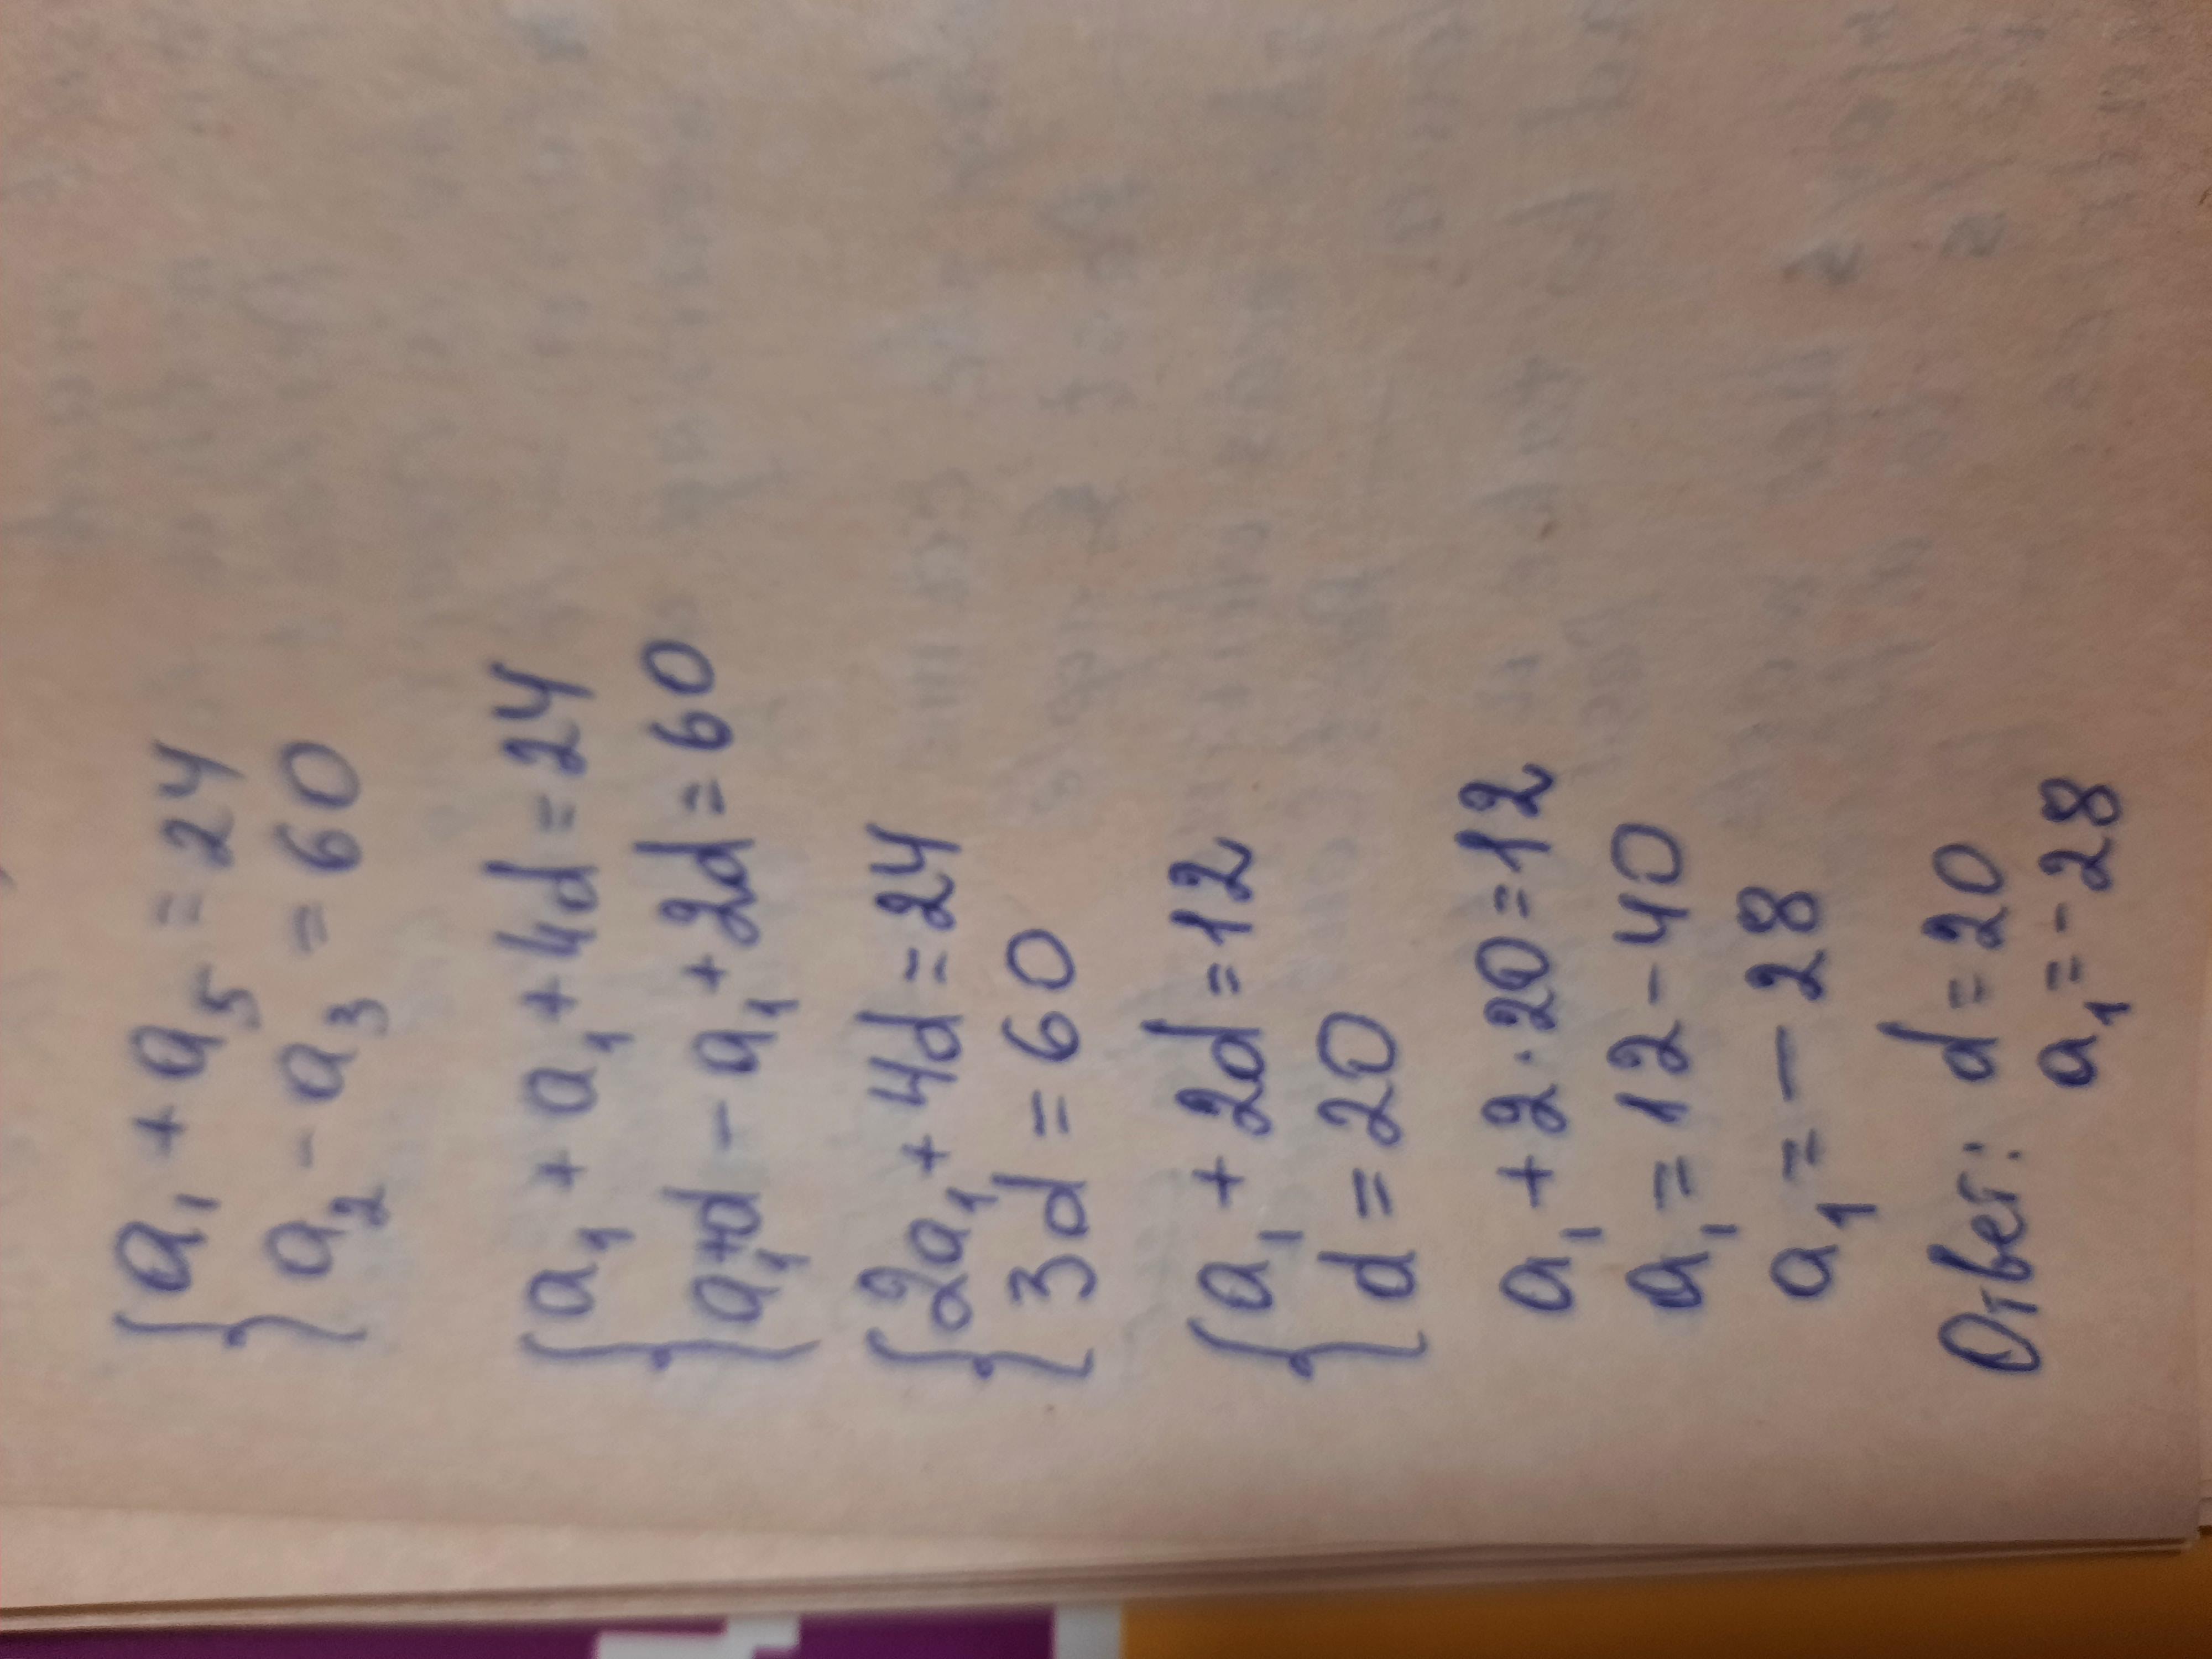 a₁ + a₅ = 24
a₂ - a₃ = 60
a₁ + a₁ + 4d = 24
a₁+d - a₁ + 2d = 60
2a₁ + 4d = 24
3d = 60
a₁ + 2d = 12
d = 20
a₁ + 2 · 20 = 12
a₁ = 12 - 40
a₁ = - 28
Ответ: d = 20
a₁ = - 28